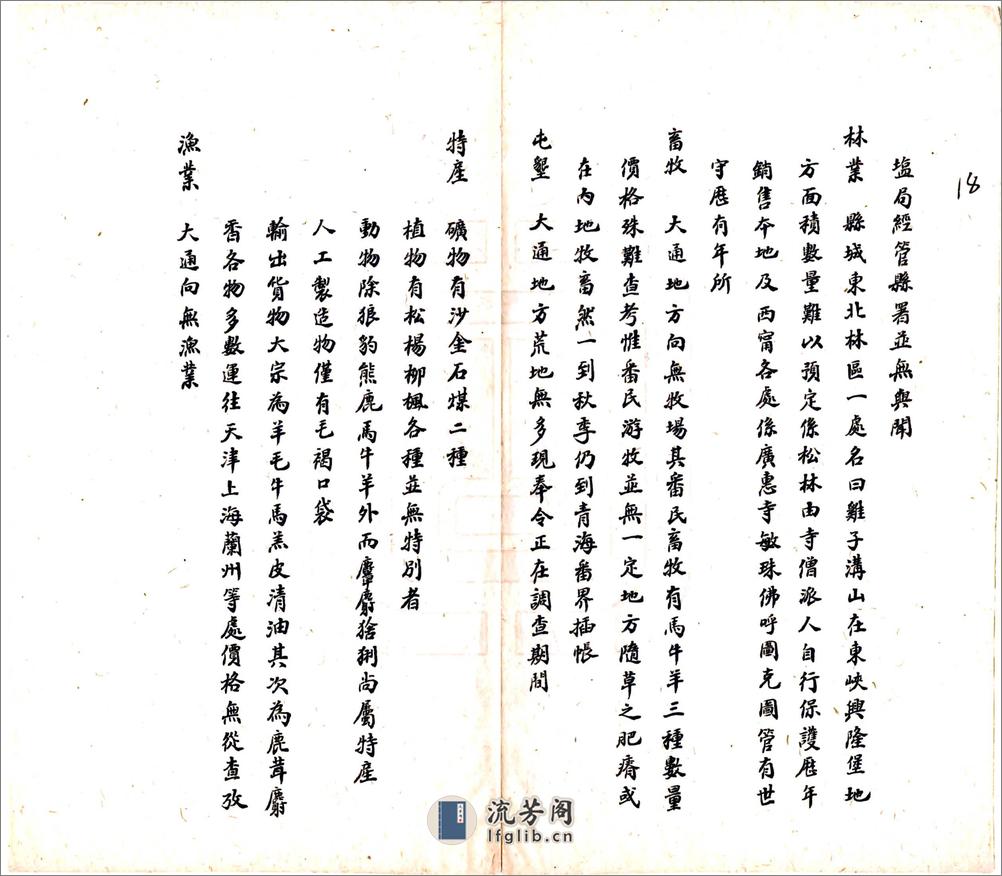 18
塩局經管縣署並無與聞
林業 縣城東北林區一處名曰雞子溝山在東峽興隆堡地
方面積數量難以預定係松林由寺僧派人自行保護歷年
銷售本地及西甯各處係廣惠寺敏珠佛呼圖克圖管有世
守歷有年所
畜牧 大通地方向無牧場其番民畜牧有馬牛羊三種數量
價格殊難查考惟番民游牧並無一定地方隨草之肥瘠或
在內地牧畜然一到秋季仍到青海番界插帳
屯墾 大通地方荒地無多現奉令正在調查期間
特產 礦物有沙金石煤二種
植物有松楊柳楓各種並無特別者
動物除狼豹熊鹿馬牛羊外而麝猞猁尚屬特產
人工製造物僅有毛褐口袋
輸出貨物大宗為羊毛牛馬羔皮清油其次為鹿茸麝
香各物多數運往天津上海蘭州等處價格無從查攷
漁業 大通向無漁業
流芳阁
lfglib.cn